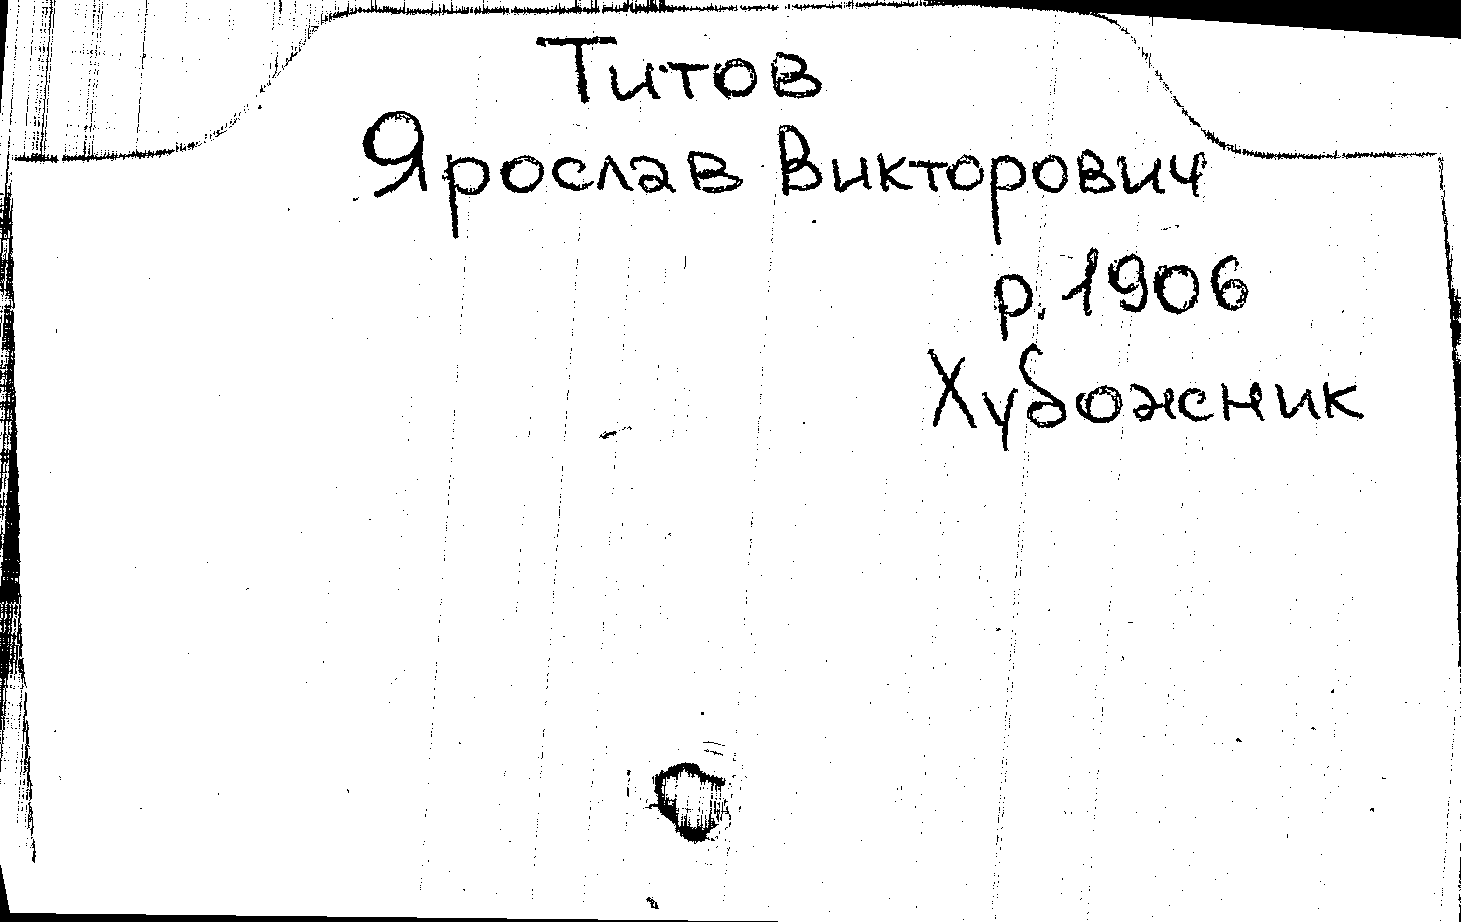 Титов
Ярослав Викторович
р. 1906
Художник